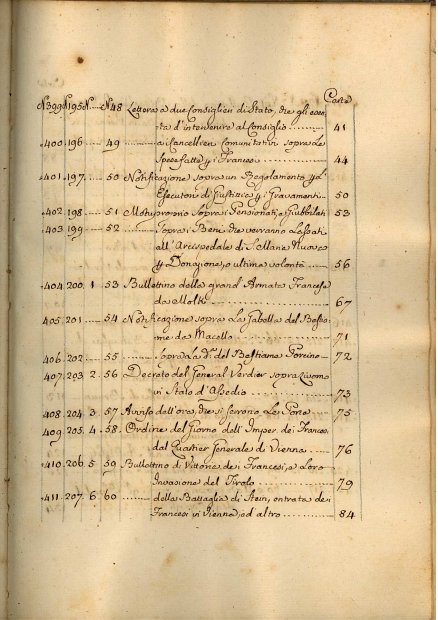 Carte
N.399 N.195 N. N.48 Lettera a due Consiglieri di Stato, che gli ecci-
ta d'intervenire al Consiglio 41
400. 196 49 a Cancellieri Comunitativi sopra Le
Spese fatte p i Francesi 44
401. 197. 50 Notificazione sopra un Regolamento p l'
Esecutori di Giustizia p i Gravamenti 50
402. 198 51 Motuproprio sopra i Pensionati, e Giubbilati 53
403. 199 52 Sopra i Beni che verranno Lasciati
all'Arcispedale di S. Maria Nuova
p Donazione, o ultima volontà 56
404. 200. 1 53 Bullettino della grand' Armata Francese
da Molk 67
405. 201 54 Notificazione sopra La Gabella del Bestia-
me da Macello 71
406. 202 55 sopra La d.ª del Bestiame Porcino 72
407. 203 2 56 Decreto del General Verdier sopra Livorno
in Stato d'Assedio 73
408. 204 3 57 Avviso dell'ora, che si serrono Le Porte 75
409. 205. 4 58. Ordine del Giorno dell' Imper. dei Francesi
dal Quartier Generale di Vienna 76
410. 206. 5 59 Bullettino di Vittorie de i Francesi, e Loro
Invasione del Tirolo 79
411. 207. 6 60 della Battaglia di Stein, entrata de i
Francesi in Vienna, ed altro 84